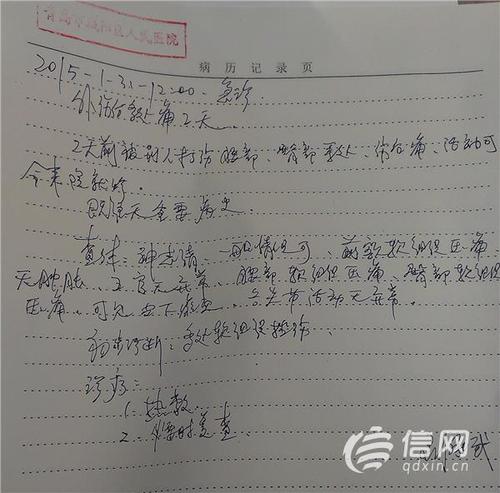 青岛市城阳区人民医院
病历记录页
2015-1-31-12:00 急诊
外伤后多处痛2天
2天前被别人打伤腰部、臀部多处、伤后痛、活动可
今来院就诊.
既往无重要病史.
查体:神志清、一般情况可、前教软组织压痛
无肿胀、五官无异常、腰部软组织压痛、臀部软组织
压痛、可见皮下瘀血、各关节活动无异常.
初步诊断:多处软组织挫伤
诊疗:
1. 热敷
2. 随时复查
信网
qdxin.cn